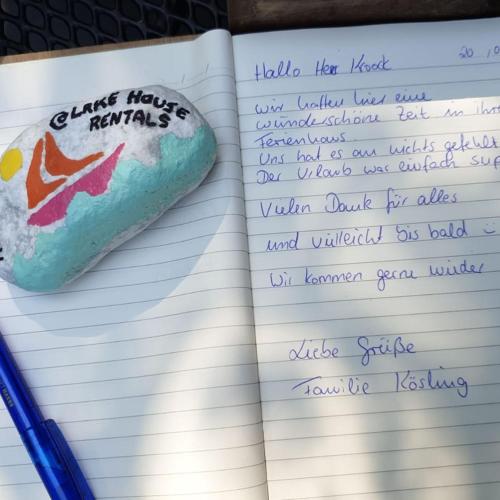 @LAKE HOUSE
RENTALS
20
Hallo Herr Krock
wir hatten hier eine
wunderschöne Zeit in
Ferienhaus.
Uns hat es an nichts gefehlt
Der Urlaub war einfach
Vielen Dank für alles
und villeicht bis bald
Wir kommen gerne wieder
Liebe Grüße
Familie Kösling